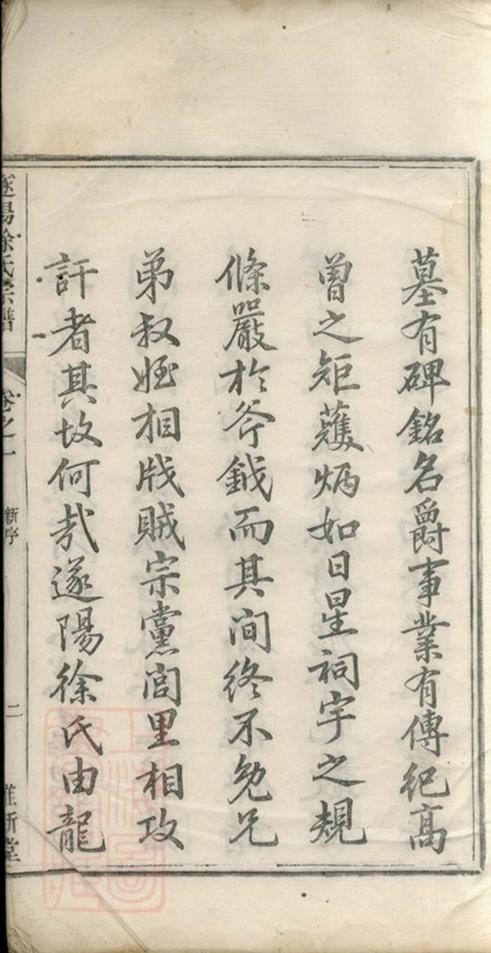 墓有碑銘名爵事業有傳紀高
曽之矩蒦炳如日星祠宇之規
條嚴於斧鉞而其间终不免兄
弟叔姪相戕賊宗黨閭里相攻
訐者其故何㢤遂陽徐氏由龍
遂陽徐氏宗譜
卷之一
新序
二